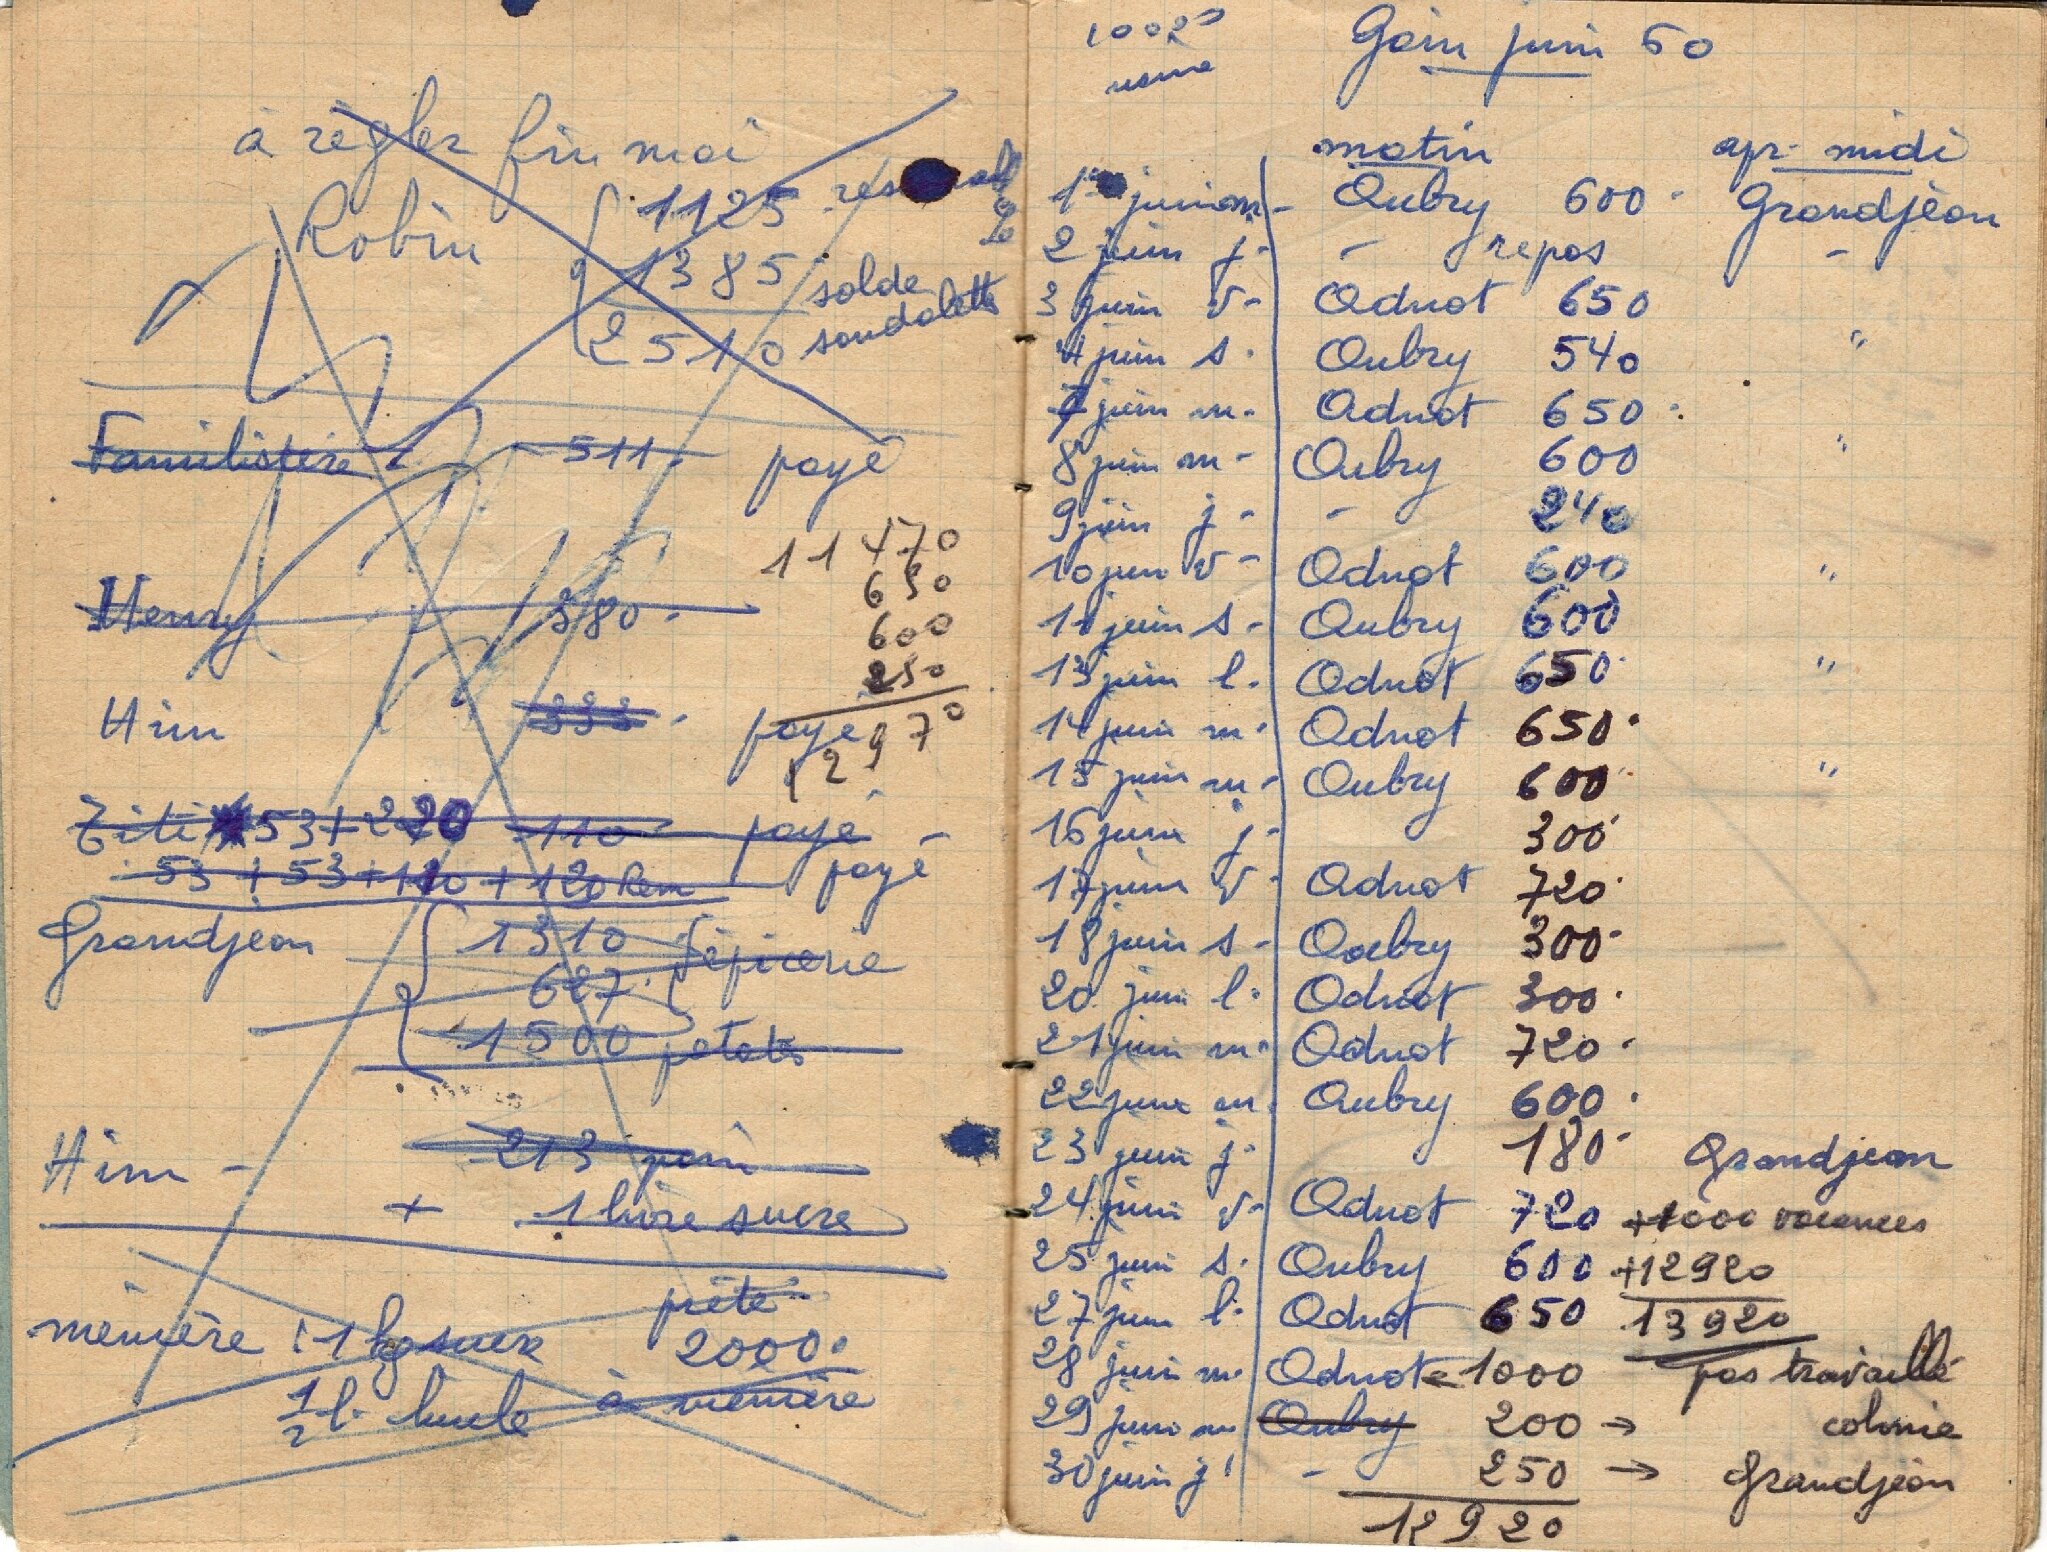 à règler fin mai
Robin 1125
1385 solde
2510 sandalette
Familistère 511. payé
11470
650
600
250
12970
Henry 380.
Him 333. payé
Titi 53+220 110 payé
53+53+110+120 payé
Grandjean 1310 épicerie
627
1500 patates
Him - 213 pain
+ 1 livre sucre
prété
mémère : 1 kg sucre 2000.
1/2 l. huile à mémère
Gain juin 60
matin apr. midi
1er juin m - Aubry 600 Grandjean
2 juin j - - repos -
3 juin v - Adnot 650
4 juin s. Aubry 540 "
7 juin m. Adnot 650
8 juin m - Aubry 600 "
9 juin j - - 240
10 juin v - Adnot 600 "
11 juin s - Aubry 600
13 juin l. Adnot 650 "
14 juin m. Adnot 650
15 juin m - Aubry 600 "
16 juin j - 300
17 juin v - Adnot 720
18 juin s - Aubry 300
20 juin l. Adnot 300
21 juin m. Adnot 720
22 juin m. Aubry 600
23 juin j. 180 Grandjean
24 juin v - Adnot 720 +1000 vacances
25 juin s. Aubry 600 +12920
27 juin l. Adnot 650 13920
28 juin m. Adnot 1000 pas travaillé
29 juin m Aubry 200 → colonie
30 juin j - 250 → Grandjean
12920